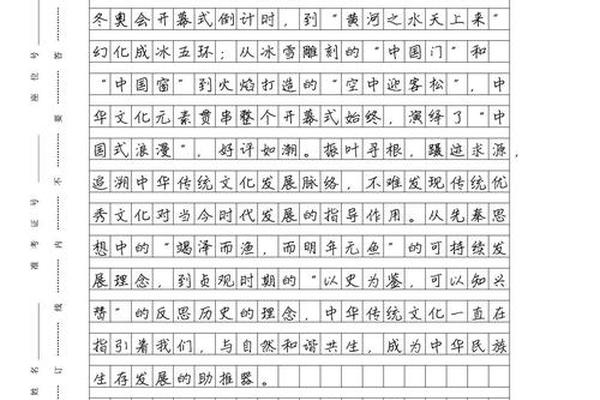 姓名 准考证号 座位号
订 线 内 不 要 答
冬奥会开幕式倒计时，到“黄河之水天上来”
幻化成冰五环；从冰雪雕刻的“中国门”和
“中国窗”到火焰打造的“空中迎客松”，中
华文化元素贯串整个开幕式始终，演绎了“中
国式浪漫”，好评如潮。振叶寻根，蹑迹求源，
追溯中华传统文化发展脉络，不难发现传统优
秀文化对当今时代发展的指导作用。从先秦思
想中的“竭泽而渔，而明年无鱼”的可持续发
展理念，到贞观时期的“以史为鉴，可以知兴
替”的反思历史的理念，中华传统文化一直在
指引着我们，与自然和谐共生，成为中华民族
生存发展的助推器。